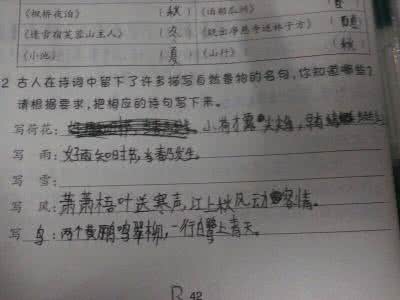 《枫桥夜泊》 (秋) 《泊船瓜洲》 (春)
《逢雪宿芙蓉山主人》 (冬) 《晓出净慈寺送林子方》 (夏)
《小池》 (夏) 《山行》 (秋)
2 古人在诗词中留下了许多描写自然景物的名句,你知道哪些?
请根据要求,把相应的诗句写下来。
写荷花: 小荷才露尖尖角,早有
写 雨:好雨知时节,当春乃发生。
写 雪:
写 风:萧萧梧叶送寒声,江上秋风动客情。
写 鸟:两个黄鹂鸣翠柳,一行白鹭上青天。
42